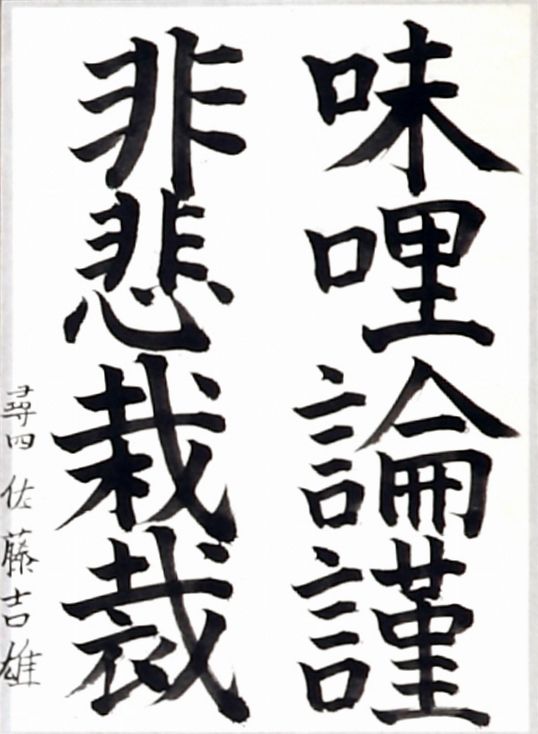 味哩論謹
非悲栽裁
尋四 佐藤吉雄